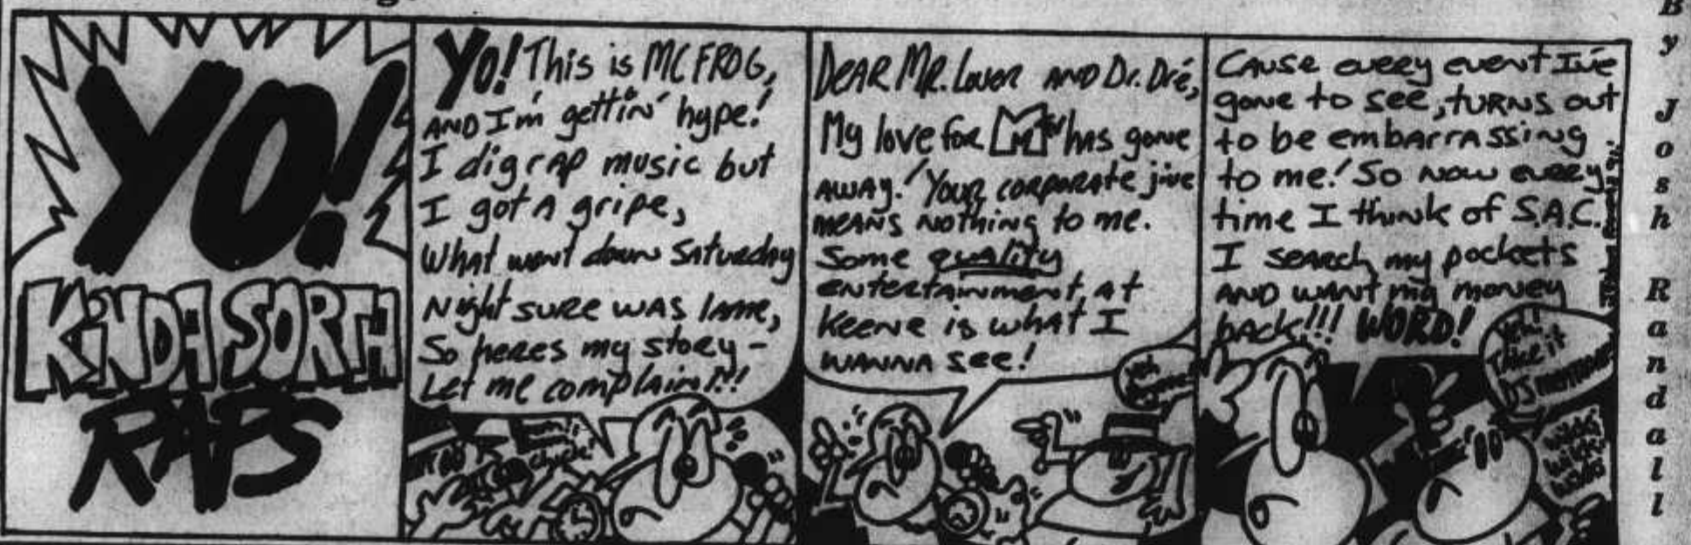 YO!
KINDA SORTA
RAPS
YO! This is MC FROG,
AND I'm gettin' hype!
I dig rap music but
I got a gripe,
What went down Saturday
Night sure was lame,
So heres my story –
Let me complain!!!
Dear Mr. Lover and Dr. Dré,
My love for MTV has gone
away! Your corporate jive
means nothing to me.
Some quality
entertainment at
Keene is what I
wanna see!
Cause every event I've
gone to see, turns out
to be embarrassing
to me! So now every
time I think of S.A.C.
I search my pockets
and want my money
back!!! WORD!
Yeh!
Take it
wikki
wikki
By Josh Randall